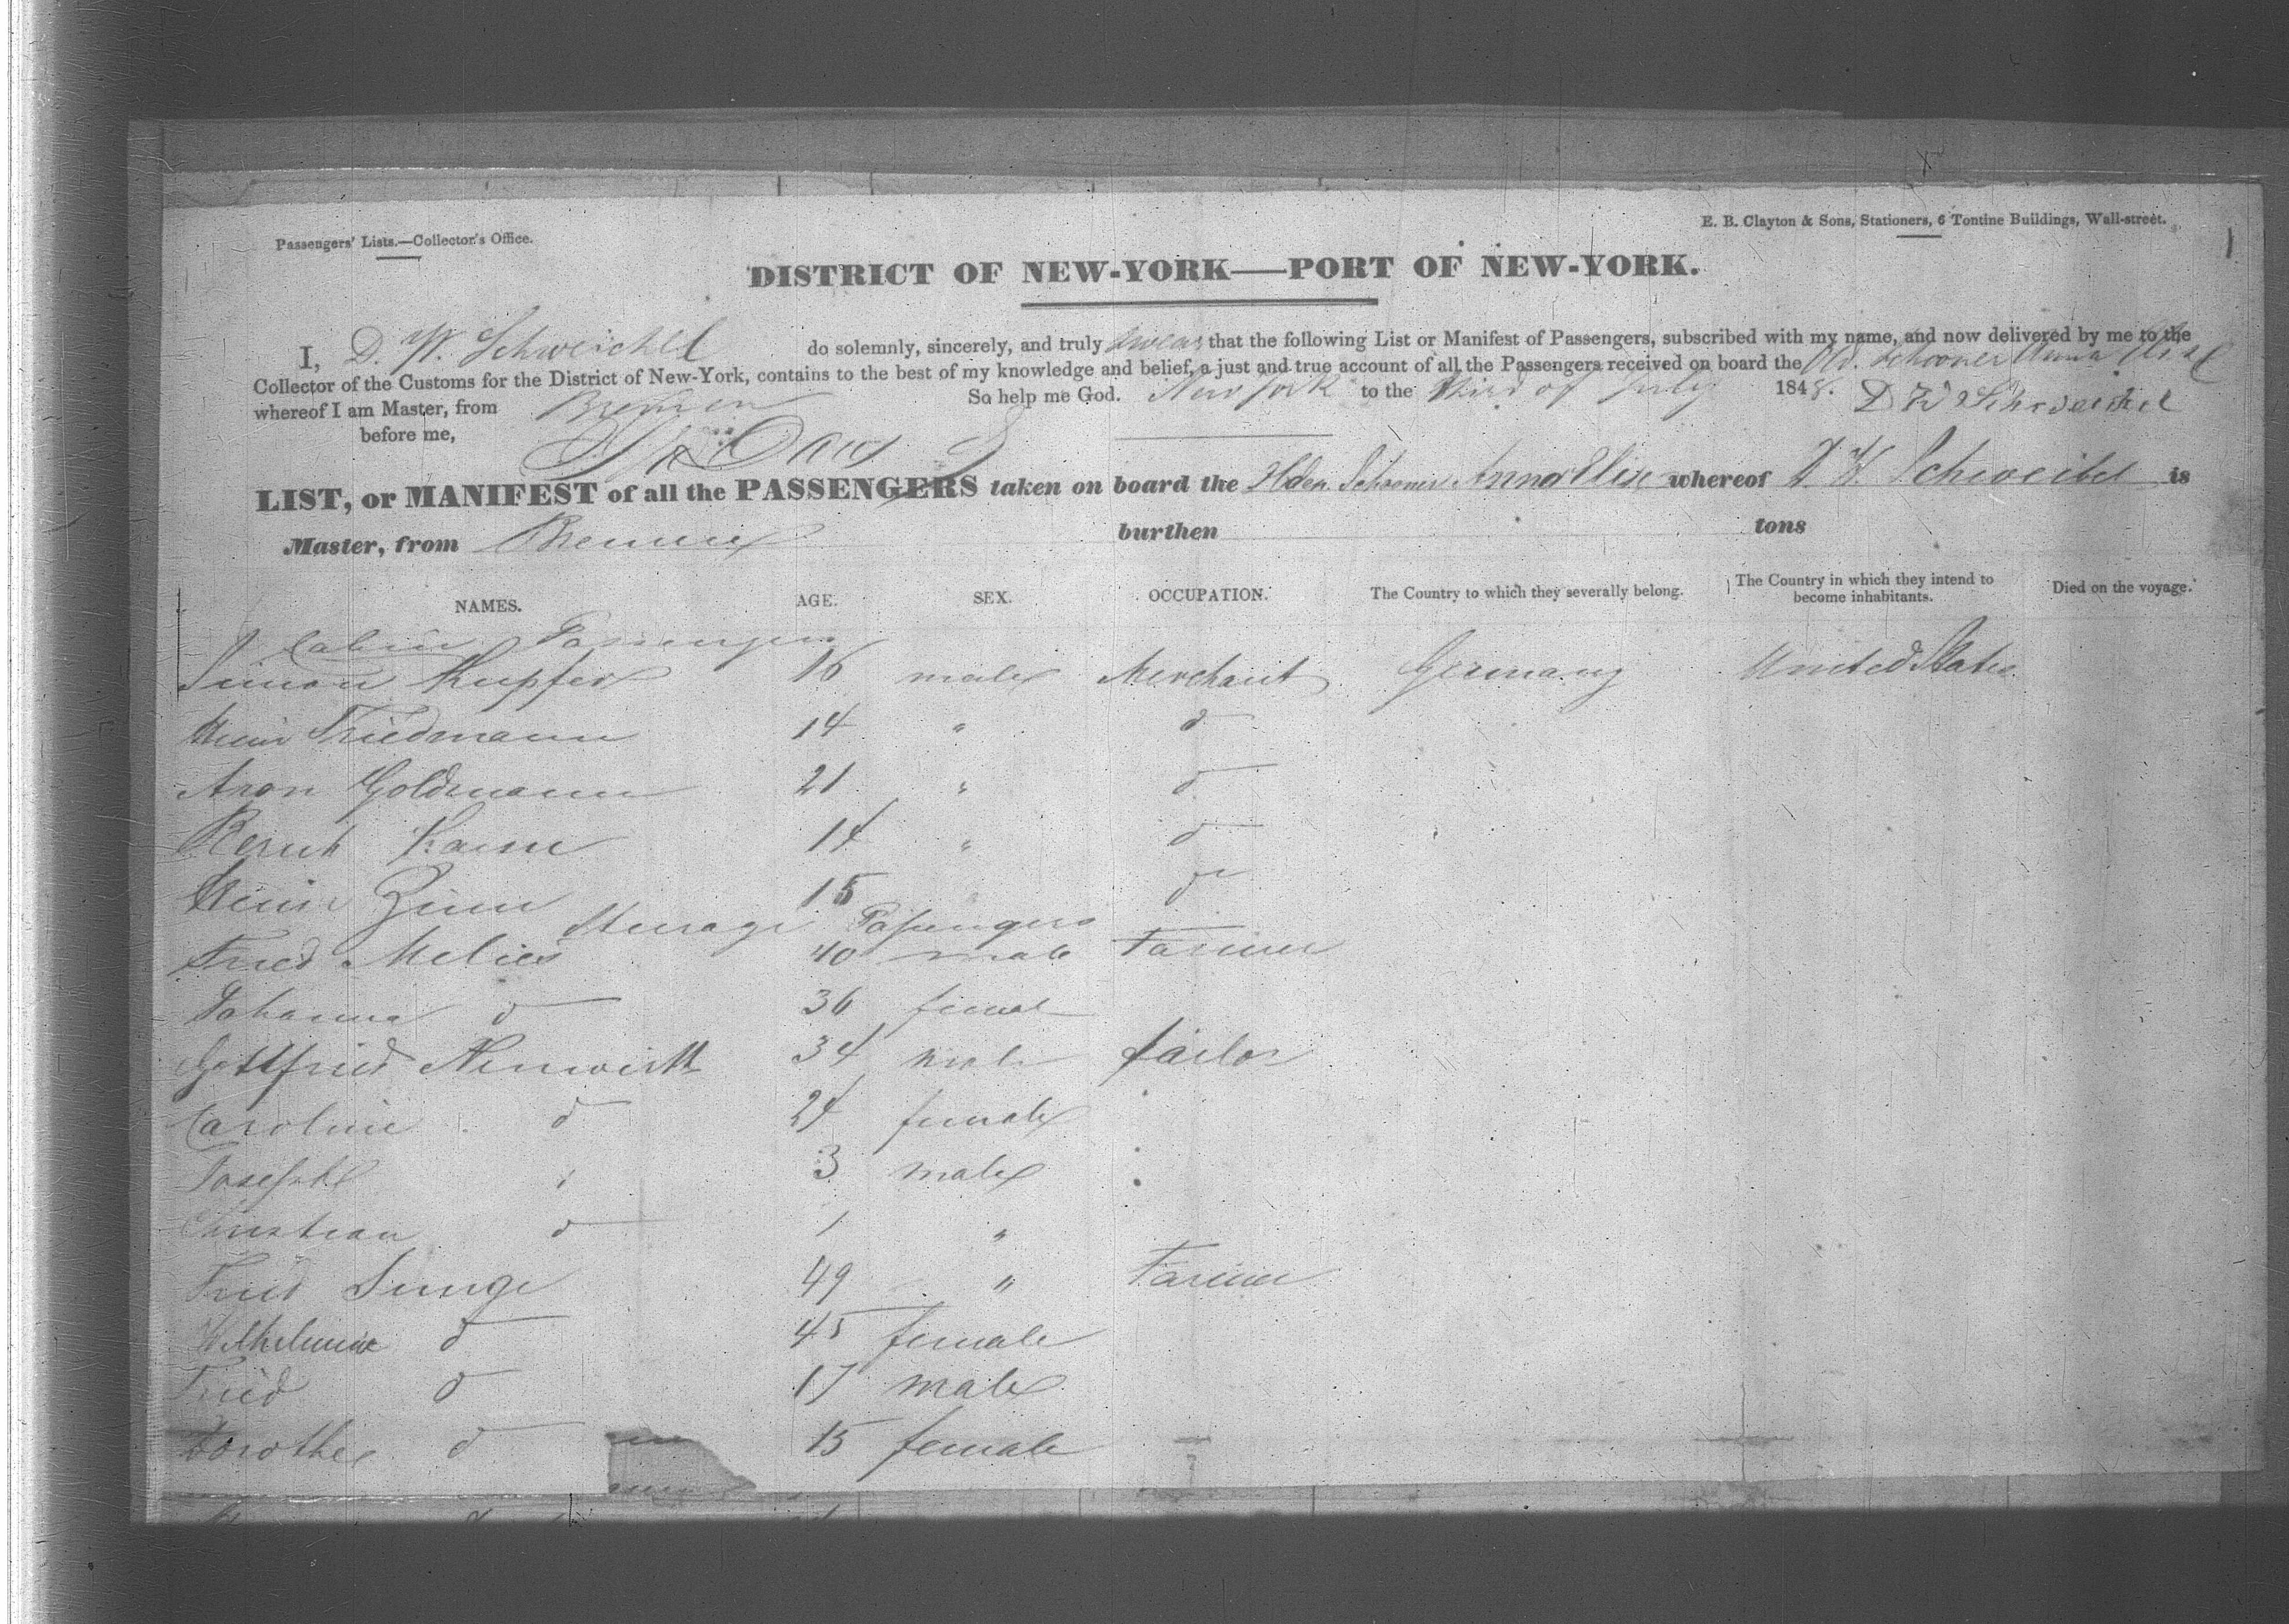 Passengers' Lists.—Collector's Office.
E. B. Clayton & Sons, Stationers, 6 Tontine Buildings, Wall-street.
1
DISTRICT OF NEW-YORK—PORT OF NEW-YORK.
I, D. W. Schweichel do solemnly, sincerely, and truly swear that the following List or Manifest of Passengers, subscribed with my name, and now delivered by me to the
Collector of the Customs for the District of New-York, contains to the best of my knowledge and belief, a just and true account of all the Passengers received on board the Old. Schooner Anna Elise
whereof I am Master, from Bremen So help me God. New York to the third of July 1848. D W Schweichel
before me,
LIST, or MANIFEST of all the PASSENGERS taken on board the Olden. Schooner Anna Elise whereof D. W. Scheibel is
Master, from Bremen burthen tons
NAMES. AGE. SEX. OCCUPATION. The Country to which they severally belong. The Country in which they intend to become inhabitants. Died on the voyage.
Cabin Passengers
Simon Kupfer 16 male Merchant Germany United States
Friedmann 14 " d
Aron Goldmann 21 " d
14 " d
Zinn 15 d
Steerage Passengers
Fried Melies 40 male Farmer
Johanna d 36 female
Gottfried Neuwirth 34 male tailor
Caroline d 24 female
Joseph 3 male
Christian d 1 "
Fried Lunge 49 " Farmer
Wilhelmine d 45 female
Fried d 17 male
Dorothee d 15 female